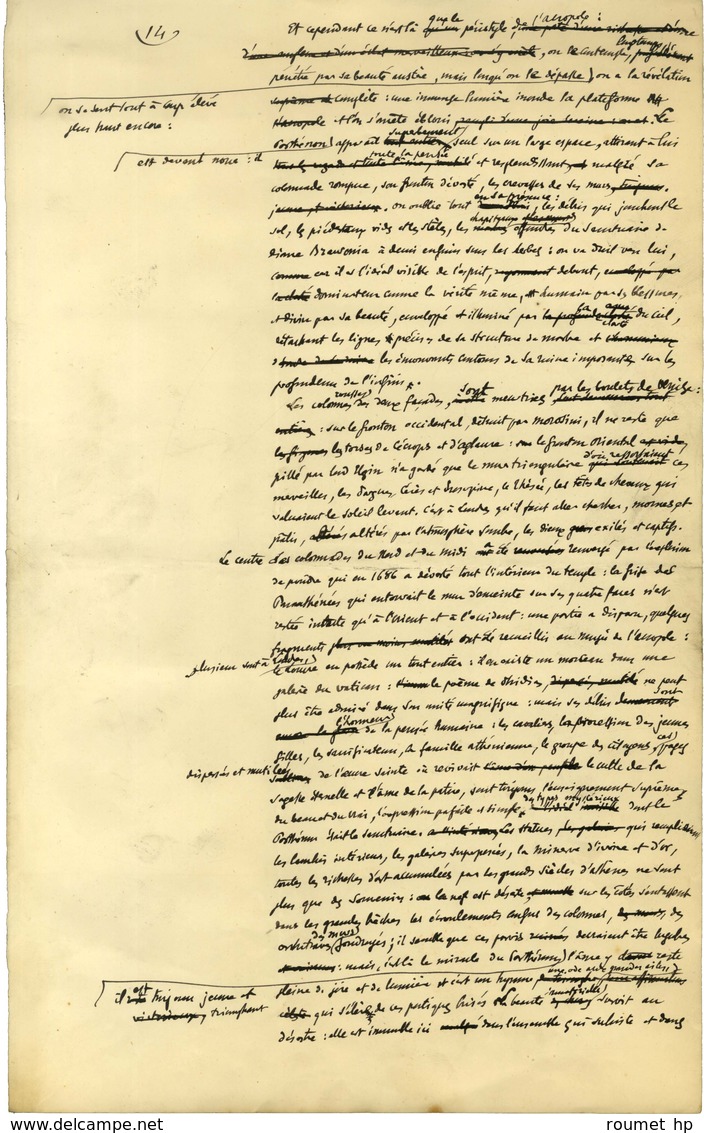 14
Et cependant ce n'est là que le péristyle de l'acropole :
on le contemple longtemps
pénétré par sa beauté austère, mais lorsqu'on le dépasse, on a la révélation
on se sent tout à coup élevé
complète : une immense lumière inonde la plateforme
plus haut encore :
et l'on s'arrête ébloui. Le
Parthénon apparaît superbement seul sur un large espace, attirant à lui
est devant nous : il
toute la pensée et resplendissant, malgré sa
colonnade rompue, son fronton dévasté, les crevasses de ses murs
on oublie tout en sa présence : les débris qui jonchent le
sol, les piédestaux vides et les stèles, les chapiteaux du sanctuaire de
Diane Brauronia à demi enfouis sous les herbes : on va droit vers lui,
car il est l'idéal visible de l'esprit, debout,
dominateur comme la vérité même, humain par ses blessures,
et divin par sa beauté, enveloppé et illuminé par la clarté du ciel,
détachant les lignes précises de sa structure de marbre et
les émouvants contours de sa ruine imposante sur les
profondeurs de l'infini.
Les colonnes rousses des deux façades, sont meurtries par les boulets de Venise :
sur le fronton occidental, détruit par Morosini, il ne reste que
les torses de Cécrops et d'Aglaure : le fronton oriental
pillé par Lord Elgin n'a gardé que le mur triangulaire d'où ressortaient ces
merveilles, les Parques, Cérès et Proserpine, le Thésée, les têtes de chevaux qui
saluaient le soleil levant. C'est à Londres qu'il faut aller chercher, mornes et
pâlis, altérés par l'atmosphère sombre, les dieux exilés et captifs.
Le centre des colonnades du Nord et du midi a été renversé par l'explosion
de poudre qui en 1686 a dévasté tout l'intérieur du temple : la frise des
Panathénées qui entourait le mur d'enceinte sur ses quatre faces n'est
restée intacte qu'à l'Orient et à l'occident : une partie a disparu, quelques
fragments ont été recueillis au musée de l'acropole :
plusieurs sont à Londres,
le Louvre en possède un tout entier : il en existe un morceau dans une
galerie du Vatican : le poème de Phidias, ne peut
plus être admiré dans son unité magnifique : mais ses débris sont
l'honneur de la pensée humaine : les cavaliers, la procession des jeunes
filles, les sacrificateurs, la famille athénienne, le groupe des citoyens, ces pages
dispersées et mutilées
de l'œuvre sainte où revivait le culte de la
Sagesse éternelle et l'âme de la patrie, sont toujours l'enseignement suprême
du beau et du vrai, l'expression parfaite et simple, du type mystérieux dont le
Parthénon était le sanctuaire. Les statues, qui remplissaient
les intérieurs, les galeries superposées, la Minerve d'ivoire et d'or,
toutes les richesses d'art accumulées par les grands siècles d'Athènes ne sont
plus que des souvenirs : la nef est déserte, sur les côtés s'entassent
dans les grandes brèches les écroulements confus des colonnes, des
architraves, des murs foudroyés ; il semble que ces parois devraient être lugubres
mais, c'est là le miracle du Parthénon, l'âme y reste
pleine de joie et de lumière et c'est un hymne, une ode aux grandes ailes,
il est toujours jeune et
triomphant
qui s'élève de ces portiques brisés. La beauté immortelle survit au
désastre : elle est immuable ici dans l'ensemble qui subsiste et dans
roumet hp